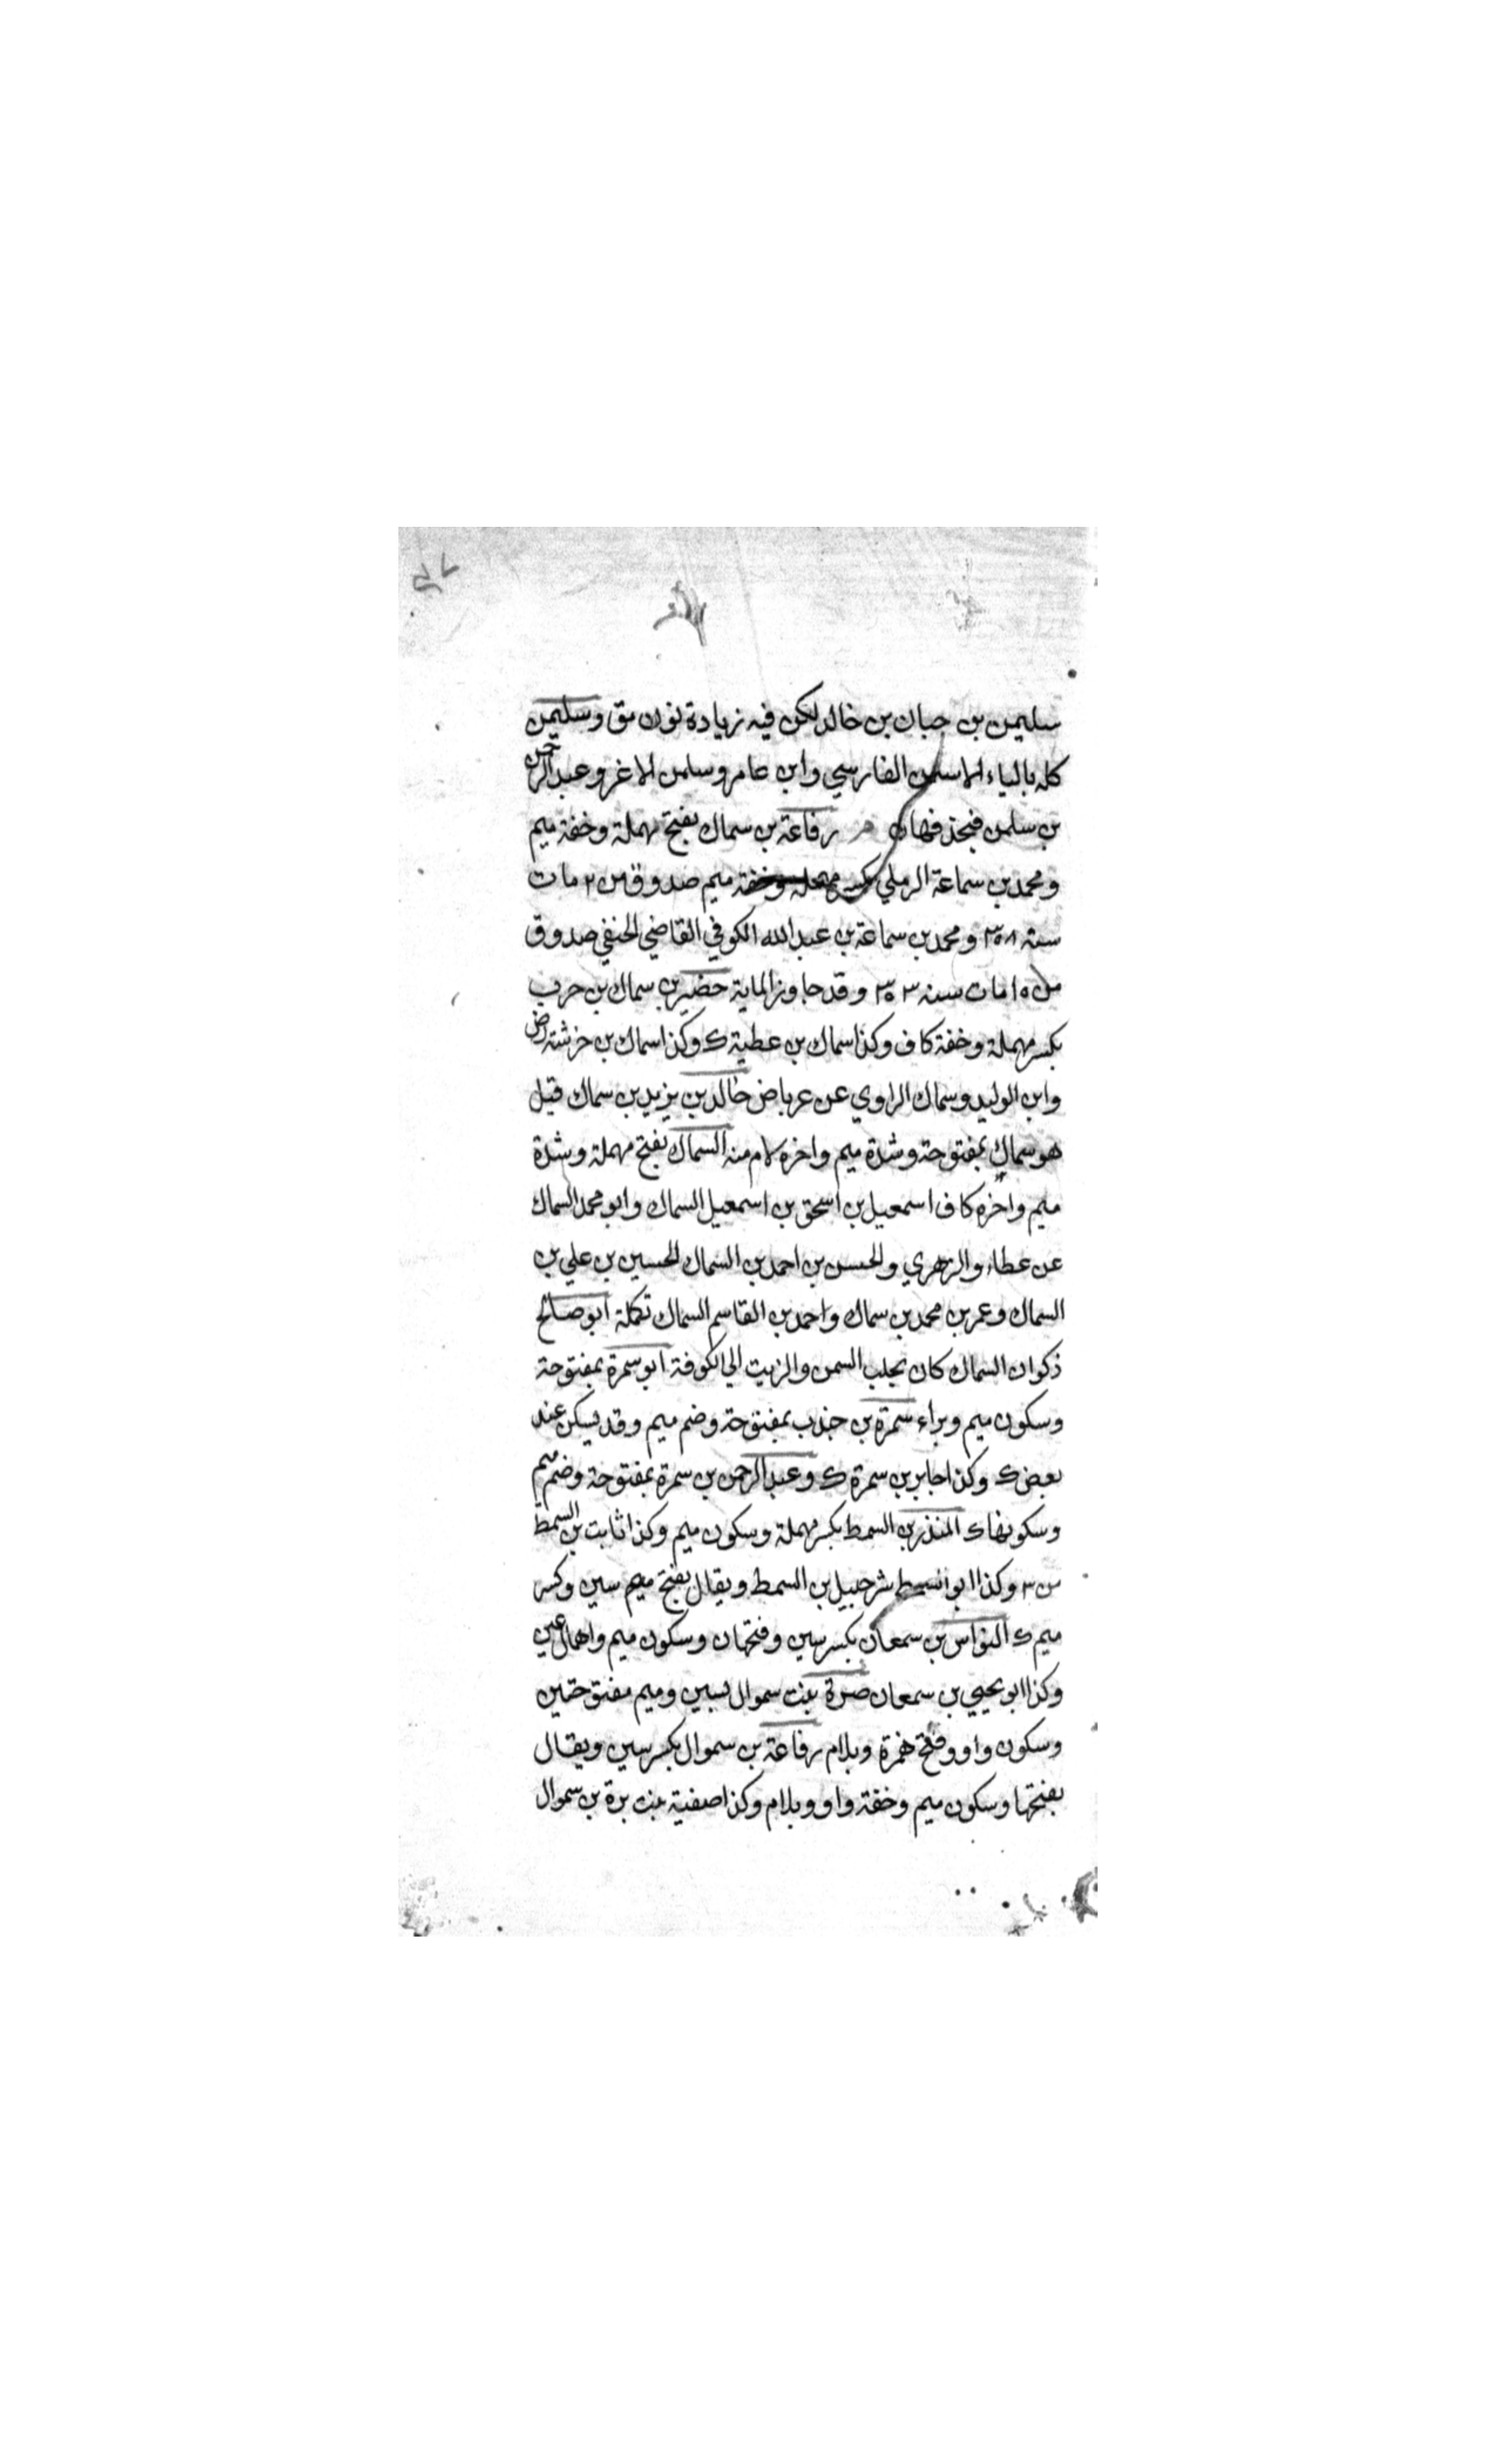 سليمن بن حبان بن خالد لكن فيه زيادة نون مق وسليمن
كله بالياء الا سلمن الفارسي وابن عامر وسلمن الاغر وعبد الرحمن
بن سلمن فبحذفها رفاعة بن سماك بفتح مهملة وخفة ميم
ومحمد بن سماعة الرملي بكسر مهملة وخفة ميم صدوق من ٢ مات
سنة ٣٥٨ ومحمد بن سماعة بن عبد الله الكوفي القاضي الحنفي صدوق
من ١٥ مات سنه ٣٥٣ وقد جاوز الماية حضير بن سماك بن حرب
بكسر مهملة وخفة كاف وكذا سماك بن عطية ك وكذا سماك بن خرشة رض
وابن الوليد وسماك الراوي عن عرباض خالد بن يزيد بن سماك قيل
هو سماك بمفتوحة وشدة ميم واخره لام منه السماك بفتح مهملة وشدة
ميم واخره كاف اسمعيل بن اسحق بن اسمعيل السماك وابو محمد السماك
عن عطاء والزهري والحسن بن احمد بن السماك الحسين بن علي بن
السماك وعمر بن محمد بن سماك واحمد بن القاسم السماك تكملة ابو صالح
ذكوان السماك كان يجلب السمن والزيت الي الكوفة ابو سمرة بمفتوحة
وسكون ميم وبراء سمرة بن جندب بمفتوحة وضم ميم وقد يسكن عند
بعض ك وكذا جابر بن سمرة ك وعبد الرحمن بن سمرة بمفتوحة وضم ميم
وسكونها ك المنذر بن السمط بكسر مهملة وسكون ميم وكذا ثابت بن السمط
من ٣ وكذا ابو السمط شرحبيل بن السمط ويقال بفتح سين وكسر
ميم ك النواس بن سمعان بكسر سين وفتحها ن وسكون ميم واهمال عين
وكذا ابو يحيي بن سمعان صرة بنت سموال بسين وميم مفتوحتين
وسكون واو وفتح همزة وبلام رفاعة بن سموال بكسر سين ويقال
بفتحها وسكون ميم وخفة واو وبلام وكذا صفية بنت برة بن سموال